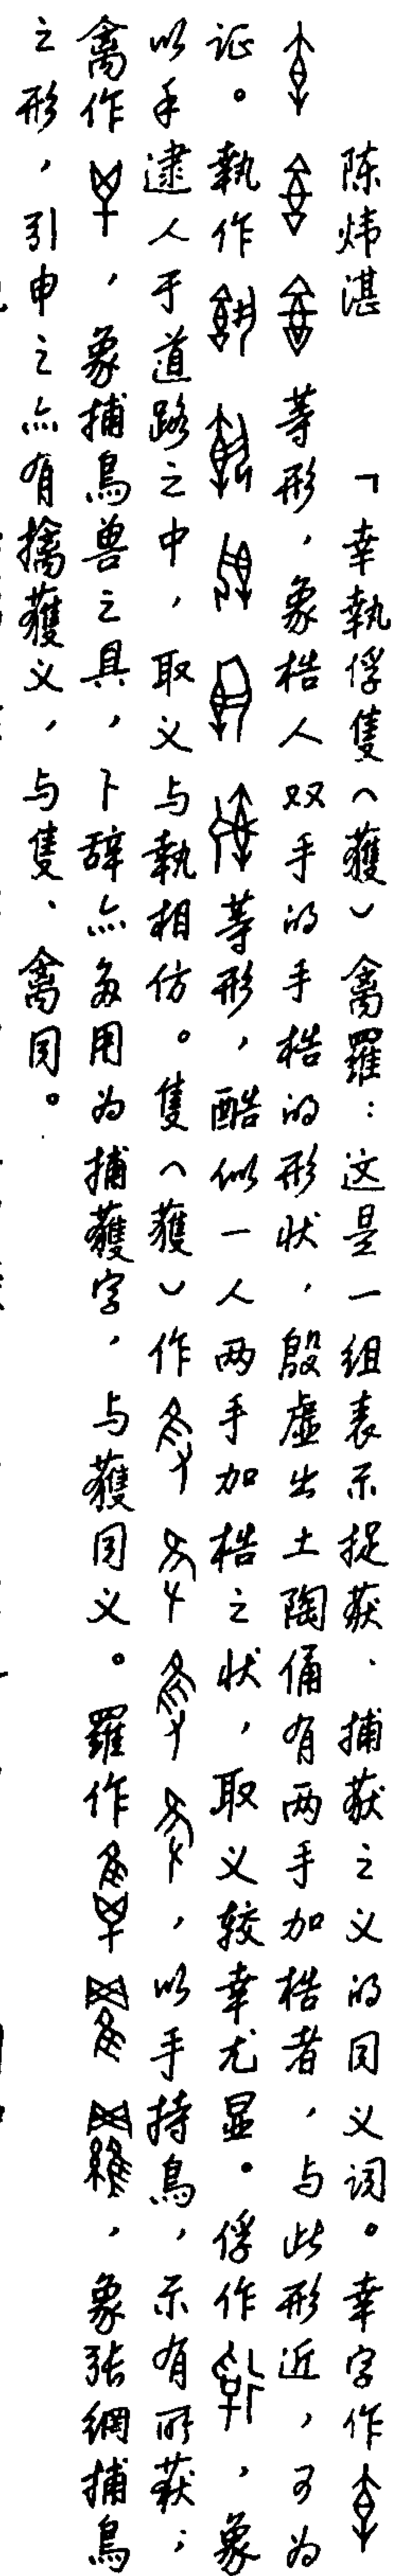 陈炜湛 「幸執俘隻（獲）禽羅：这是一组表示捉获、捕获之义的同义词。幸字作
等形，象梏人双手的手梏的形状，殷虚出土陶俑有两手加梏者，与此形近，可为
证。執作 等形，酷似一人两手加梏之状，取义较幸尤显。俘作 ，象
以手逮人于道路之中，取义与執相仿。隻（獲）作 ，以手持鳥，示有所获；
禽作 ，象捕鳥兽之具，卜辞亦多用为捕獲字，与獲同义。羅作 ，象张網捕鳥
之形，引申之亦有擒獲义，与隻、禽同。